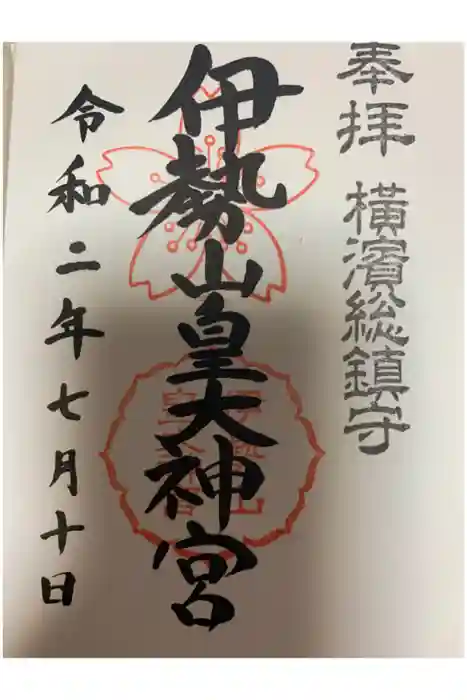 奉拝 横濱総鎮守
伊勢山皇大神宮
令和二年七月十日